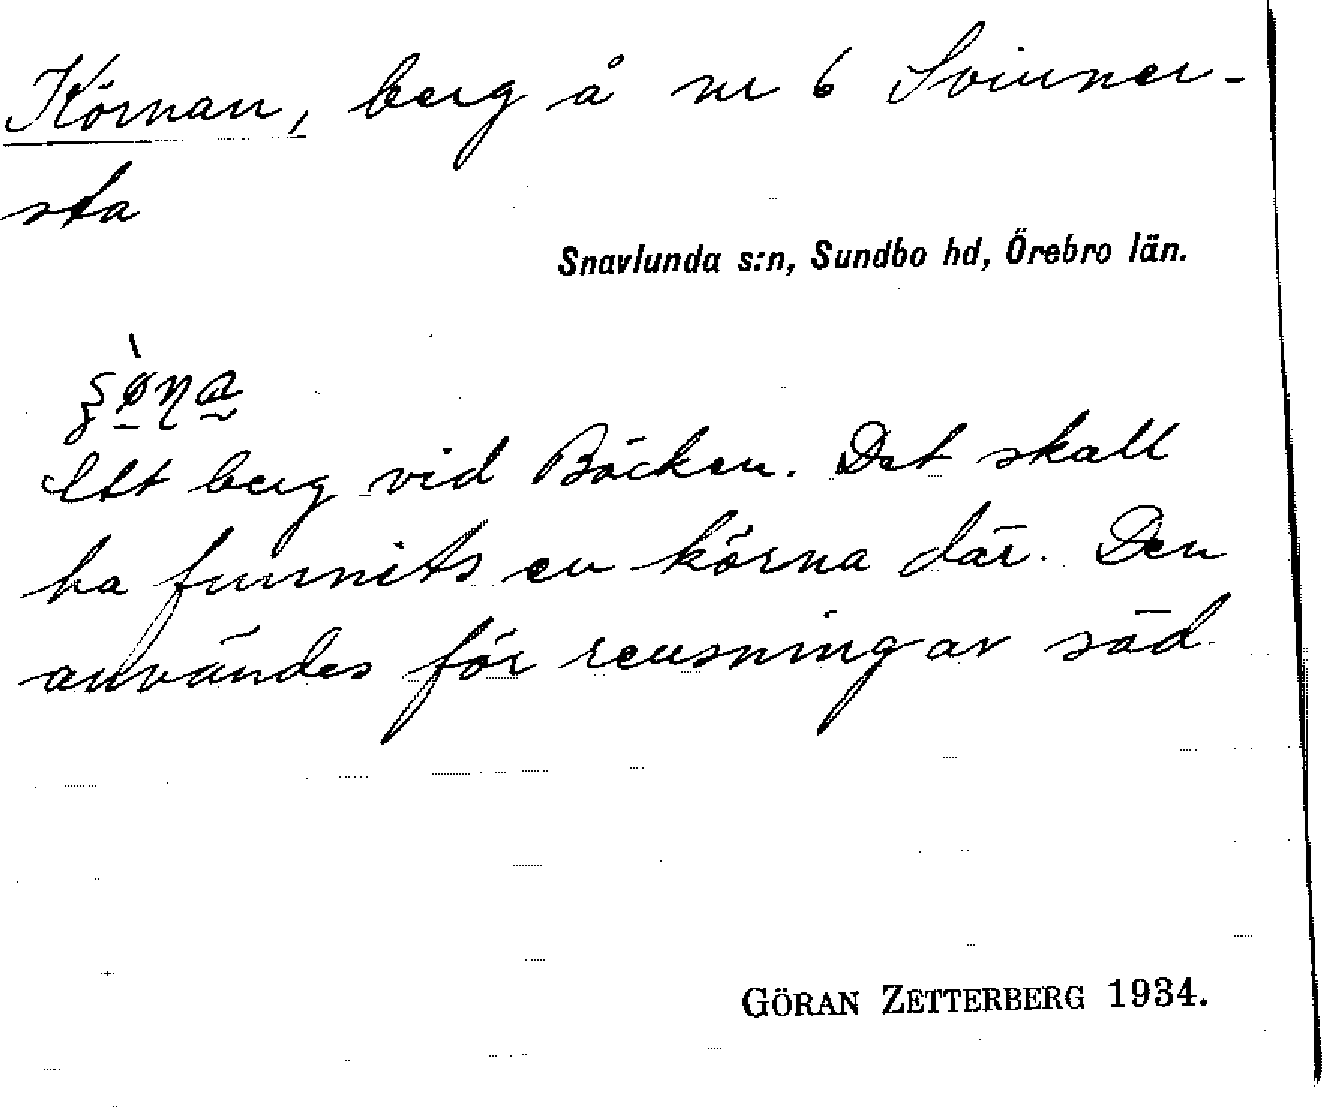 Körnan, berg å nr 6 Svinner-
sta
Snavlunda s:n, Sundbo hd, Örebro län.
Ett berg vid Böcken. Det skall
ha funnits en körna där. Den
användes för rensning av säd
GÖRAN ZETTERBERG 1934.